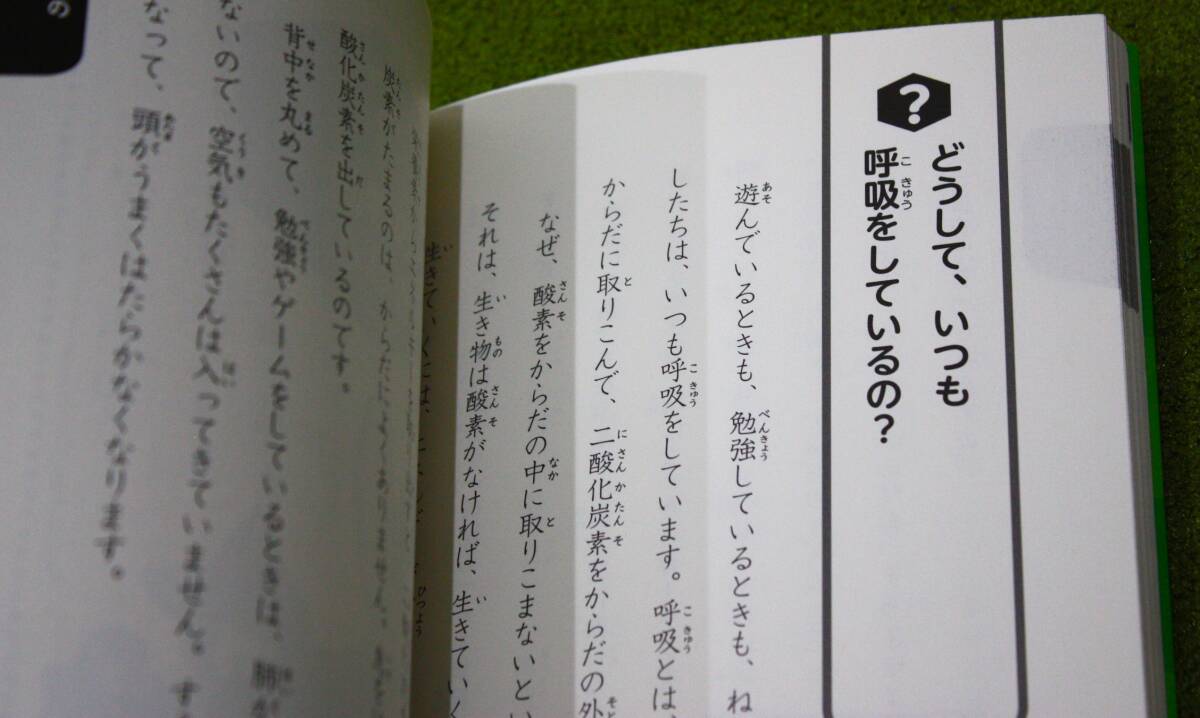 ?
どうして、いつも
呼吸をしているの?
遊んでいるときも、勉強しているときも、ね
したちは、いつも呼吸をしています。呼吸とは、
からだに取りこんで、二酸化炭素をからだの外
なぜ、酸素をからだの中に取りこまないとい
それは、生き物は酸素がなければ、生きていく
生きていくには、
炭素がたまるのは、からだによくありません。
酸化炭素を出しているのです。
背中を丸めて、勉強やゲームをしているときは、肺が
ないので、空気もたくさんは入ってきていません。す
なって、頭がうまくはたらかなくなります。
の